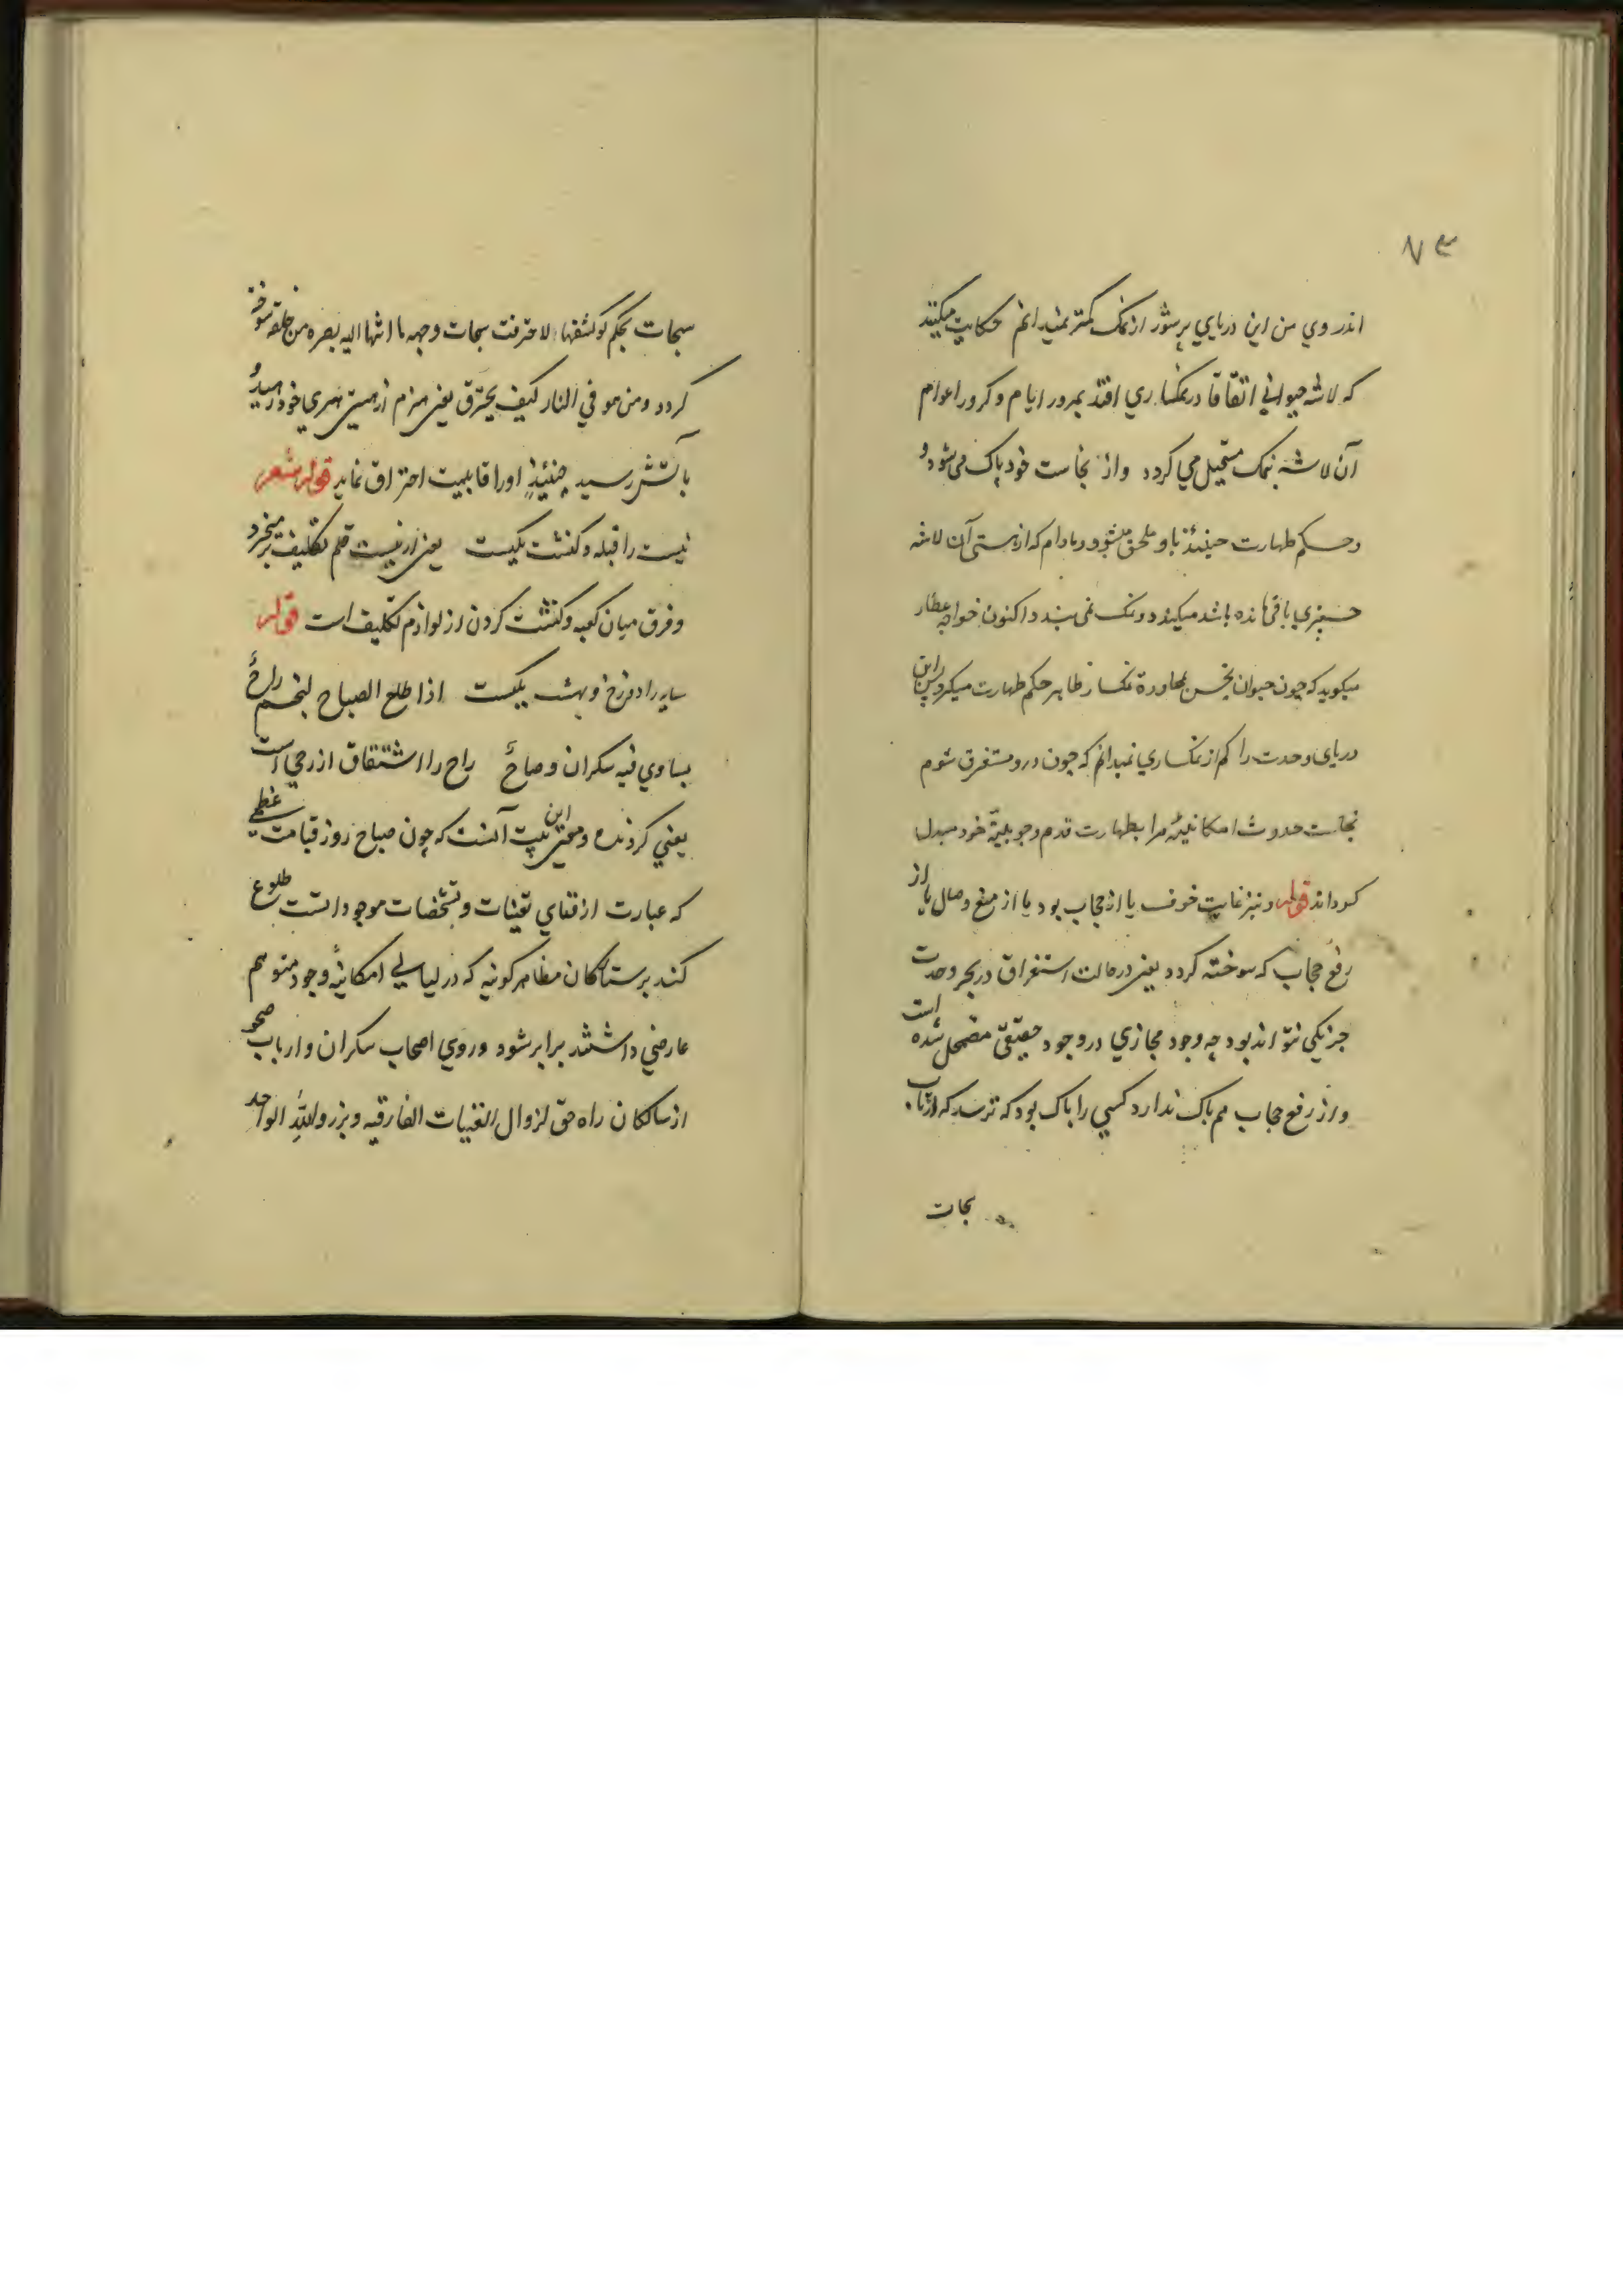 ۷۳
اندر وي من اين درياي پرشور از نمک کمتر نميدانم حکايت ميکنند
که لاشه حيواني اتفاقا در نمکساري افتد بمرور ايام و کرور اعوام
آن لاشه نمک مستحيل مي کردد واز نجاست خود پاک مي شود و
وحکم طهارت حينئذ باو ملحق ميشود ومادام که از هستي آن لاشه
چيزي باقي مانده باشد ميکندد ونمک نمي بندد اکنون خواجه عطار
ميکويد که چون حيوان نجس بمجاورة نمکسار ظاهر حکم طهارت ميکيرد من اين
درياي وحدت را کم از نمکساري نميدانم که چون درو مستغرق شوم
نجاست حدوث امکانيه مرا بطهارت قدم وجوبية خود مبدل
کرداند قوله ونيز غايت خوف يا از حجاب بود يا از منع وصال يا از
رفع حجاب که سوخته کردد يعني در حالت استغراق در بحر وحدت
جز يکي نتواند بود چه وجود مجازي در وجود حقيقي مضمحل شده است
واز رفع حجاب هم باک ندارد کسي را باک بود که ترسد که از تاب
سبحات
سبحات بحکم لو کشفها لاحترقت سبحات وجهه ما انتها اليه بصره من خلقه سوخته
کردد ومن هو في النار کيف يحترق يعني هيزم از هستي هيزمي خود رهيد و
بآتش رسيد حينئذ اورا قابليت احتراق نمايد قوله شعر
نيست را قبله وکنشت يکيست يعني از نيست قلم تکليف برميخيزد
وفرق ميان کعبه وکنشت کردن از لوازم تکليف است قوله
سايه را دوزخ وبهشت يکيست اذا طلع الصباح لنجم راح
يساوي فيه سکران وصاح راح را اشتقاق از رحي است
يعني کردنده ومعني اين بيت آنست که چون صباح روز قيامت عظمي
که عبارت از فناي تعينات وتشخصات موجوداتست طلوع
کند برستارکان مظاهر کونيه که در ليالي امکانيه وجود متوهم
عارضي داشتند برابر شود وروي اصحاب سکران وارباب صحو
از سالکان راه حق لزوال التعينات الفارقيه وبرزوا لله الواحد